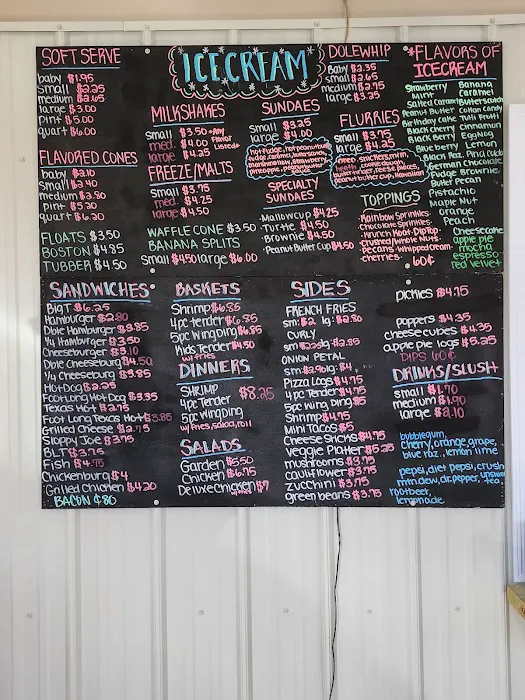 SOFT SERVE
baby $1.95
small $2.25
medium $2.65
large $3.00
pint $5.00
quart $6.00
FLAVORED CONES
baby $2.10
small $2.40
medium $2.80
pint $5.20
quart $6.20
FLOATS $3.50
BOSTON $4.35
TUBBER $4.50
ICE CREAM
MILKSHAKES
small $3.50 *Any
med. $4.00 Flavor
large $4.25 Listed*
FREEZE/MALTS
small $3.75
med. $4.25
large $4.50
WAFFLE CONE $3.50
BANANA SPLITS
small $4.50 large $6.00
SUNDAES
small $3.25
large $4.00
hot fudge, hot peanut butter,
fudge, caramel, butterscotch,
marshmallow, strawberry,
pineapple,
SPECIALTY
SUNDAES
·Mallowcup $4.25
·Turtle $4.50
·Brownie $4.50
·Peanut Butter Cup $4.50
DOLEWHIP
Baby $2.35
small $2.65
medium $2.75
large $3.25
FLURRIES
small $3.75
large $4.25
oreo, snickers, m+m,
heath, cookie dough,
butterfinger, reese pieces,
peanut butter cup, Hawaiian
TOPPINGS
·Rainbow Sprinkles·
·Chocolate Sprinkles·
·Krunch Koat·Dip Top·
·Crushed/Whole Nuts·
·pecans·Whipped Cream·
·cherries·
60¢
*FLAVORS OF
ICECREAM
Strawberry Banana
Mint Caramel
Salted Caramel Butterscotch
Peanut Butter Cotton Candy
Birthday Cake Tutti Frutti
Black Cherry Cinnamon
Black Berry Eggnog
Blueberry Lemon
Black Raz. Pina Colada
German Chocolate
Fudge Brownie
Butter Pecan
Pistachio
Maple Nut
orange
Peach
Cheesecake
apple pie
mocha
espresso
red velvet
SANDWICHES*
Big T $6.25
Hamburger $2.80
Dble Hamburger $3.95
1/4 Hamburger $3.50
Cheeseburger $3.10
Dble Cheeseburg $4.50
1/4 Cheeseburg $3.95
Hot Dog $2.25
Foot Long Hot Dog $3.35
Texas Hot $2.75
Foot Long Texas Hot $3.85
Grilled Cheese $2.75
Sloppy Joe $3.75
BLT $3.75
Fish $4.75
Chickenburg $4
Grilled Chicken $4.20
BACON ¢80
BASKETS
Shrimp $6.85
4pc tender $6.85
5pc Wing Ding $6.85
Kids Tender $4.50
w/ fries
DINNERS
SHRIMP
4pc Tender $8.25
5pc Wing Ding
w/ fries, salad, roll
SALADS
Garden $5.50
Chicken $6.75
Deluxe Chicken $7
w/ fries
SIDES
FRENCH FRIES
sm: $2. lg: $2.80
CURLY
sm $2.25 lg: $2.95
ONION PETAL
sm: $2.90 lg: $4
Pizza Logs $4.75
4pc Tender $4.75
5pc Wing Ding $5
Shrimp $4.75
Mini Tacos $5
Cheese Sticks $4.75
Veggie Platter $5.25
mushrooms $3.75
cauliflower $3.75
zucchini $3.75
green beans $3.75
pickies $4.75
poppers $4.35
cheese cubes $4.35
apple pie logs $5.25
DIPS 60¢
DRINKS/SLUSH
small $1.70
medium $1.90
large $2.10
bubblegum,
cherry, orange, grape,
blue raz., lemon lime
pepsi, diet pepsi, crush
mtn. dew, dr. pepper, unsweet
tea,
rootbeer,
lemonade